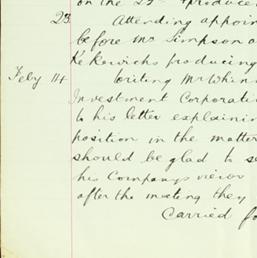 on the 25th & produce
23 Attending appoin
before Mr Simpson a
Kekewich producing
Feby 14 Writing Mr Whinn
Investment Corporati
to his letter explainin
position in the matter
should be glad to se
his Company's views
after the meeting they
Carried fo